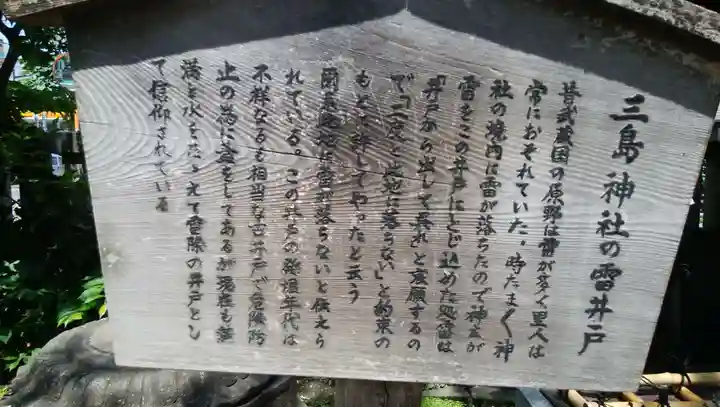 三島神社の雷井戸
昔武蔵国の原野は雷が多く里人は
常におそれていた。時たまく神
社の境内に雷が落ちたので神主が
雷をこの井戸にとじ込めた処雷は
「井戸から出して呉れと哀願するの
で「二度と此地に落ちない」と約束の
もとに許してやったと云う
爾来此地に雷が落ちないと伝えら
れている。この井戸の発掘年代は
不祥なるも相当な古井戸で危険防
止の為に蓋をしてあるが現在も無
満と水をたゝえて雷除の井戸とし
て信仰されている